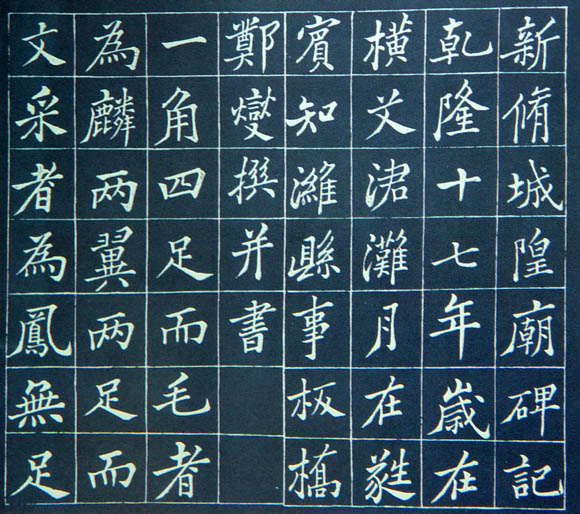 新脩城隍廟碑記
乾隆十七年歲在
橫艾涒灘月在蕤
賓知濰縣事板橋
鄭燮撰并書
一角四足而毛者
為麟两翼两足而
文采者為鳳無足